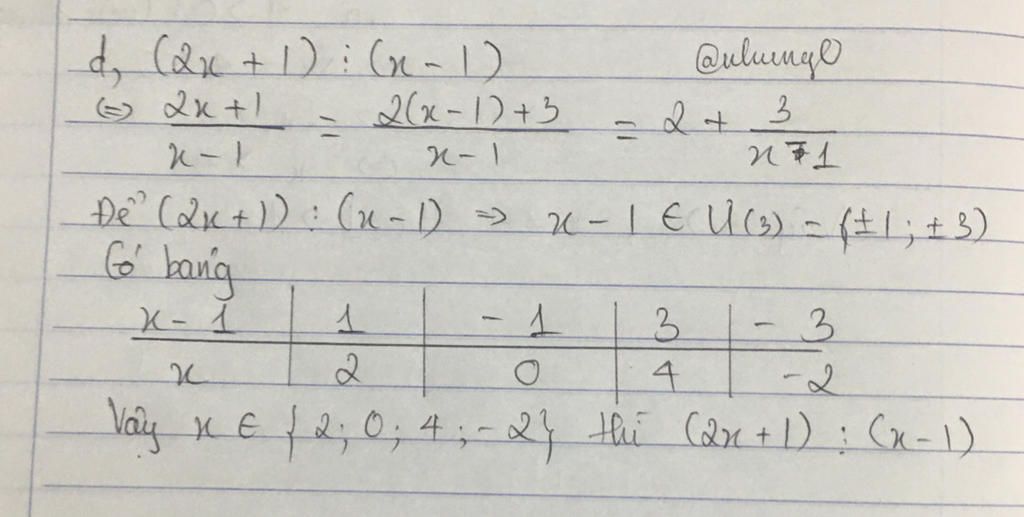 d, (2x + 1) ⋮ (x - 1)
⇔ \frac{2x + 1}{x - 1} = \frac{2(x - 1) + 3}{x - 1} = 2 + \frac{3}{x - 1}
Để (2x + 1) ⋮ (x - 1) ⇒ x - 1 ∈ Ư(3) = {±1; ±3}
Có bảng
x - 1 | 1 | - 1 | 3 | - 3
x | 2 | 0 | 4 | -2
Vậy x ∈ {2; 0; 4; -2} thì (2x + 1) ⋮ (x - 1)